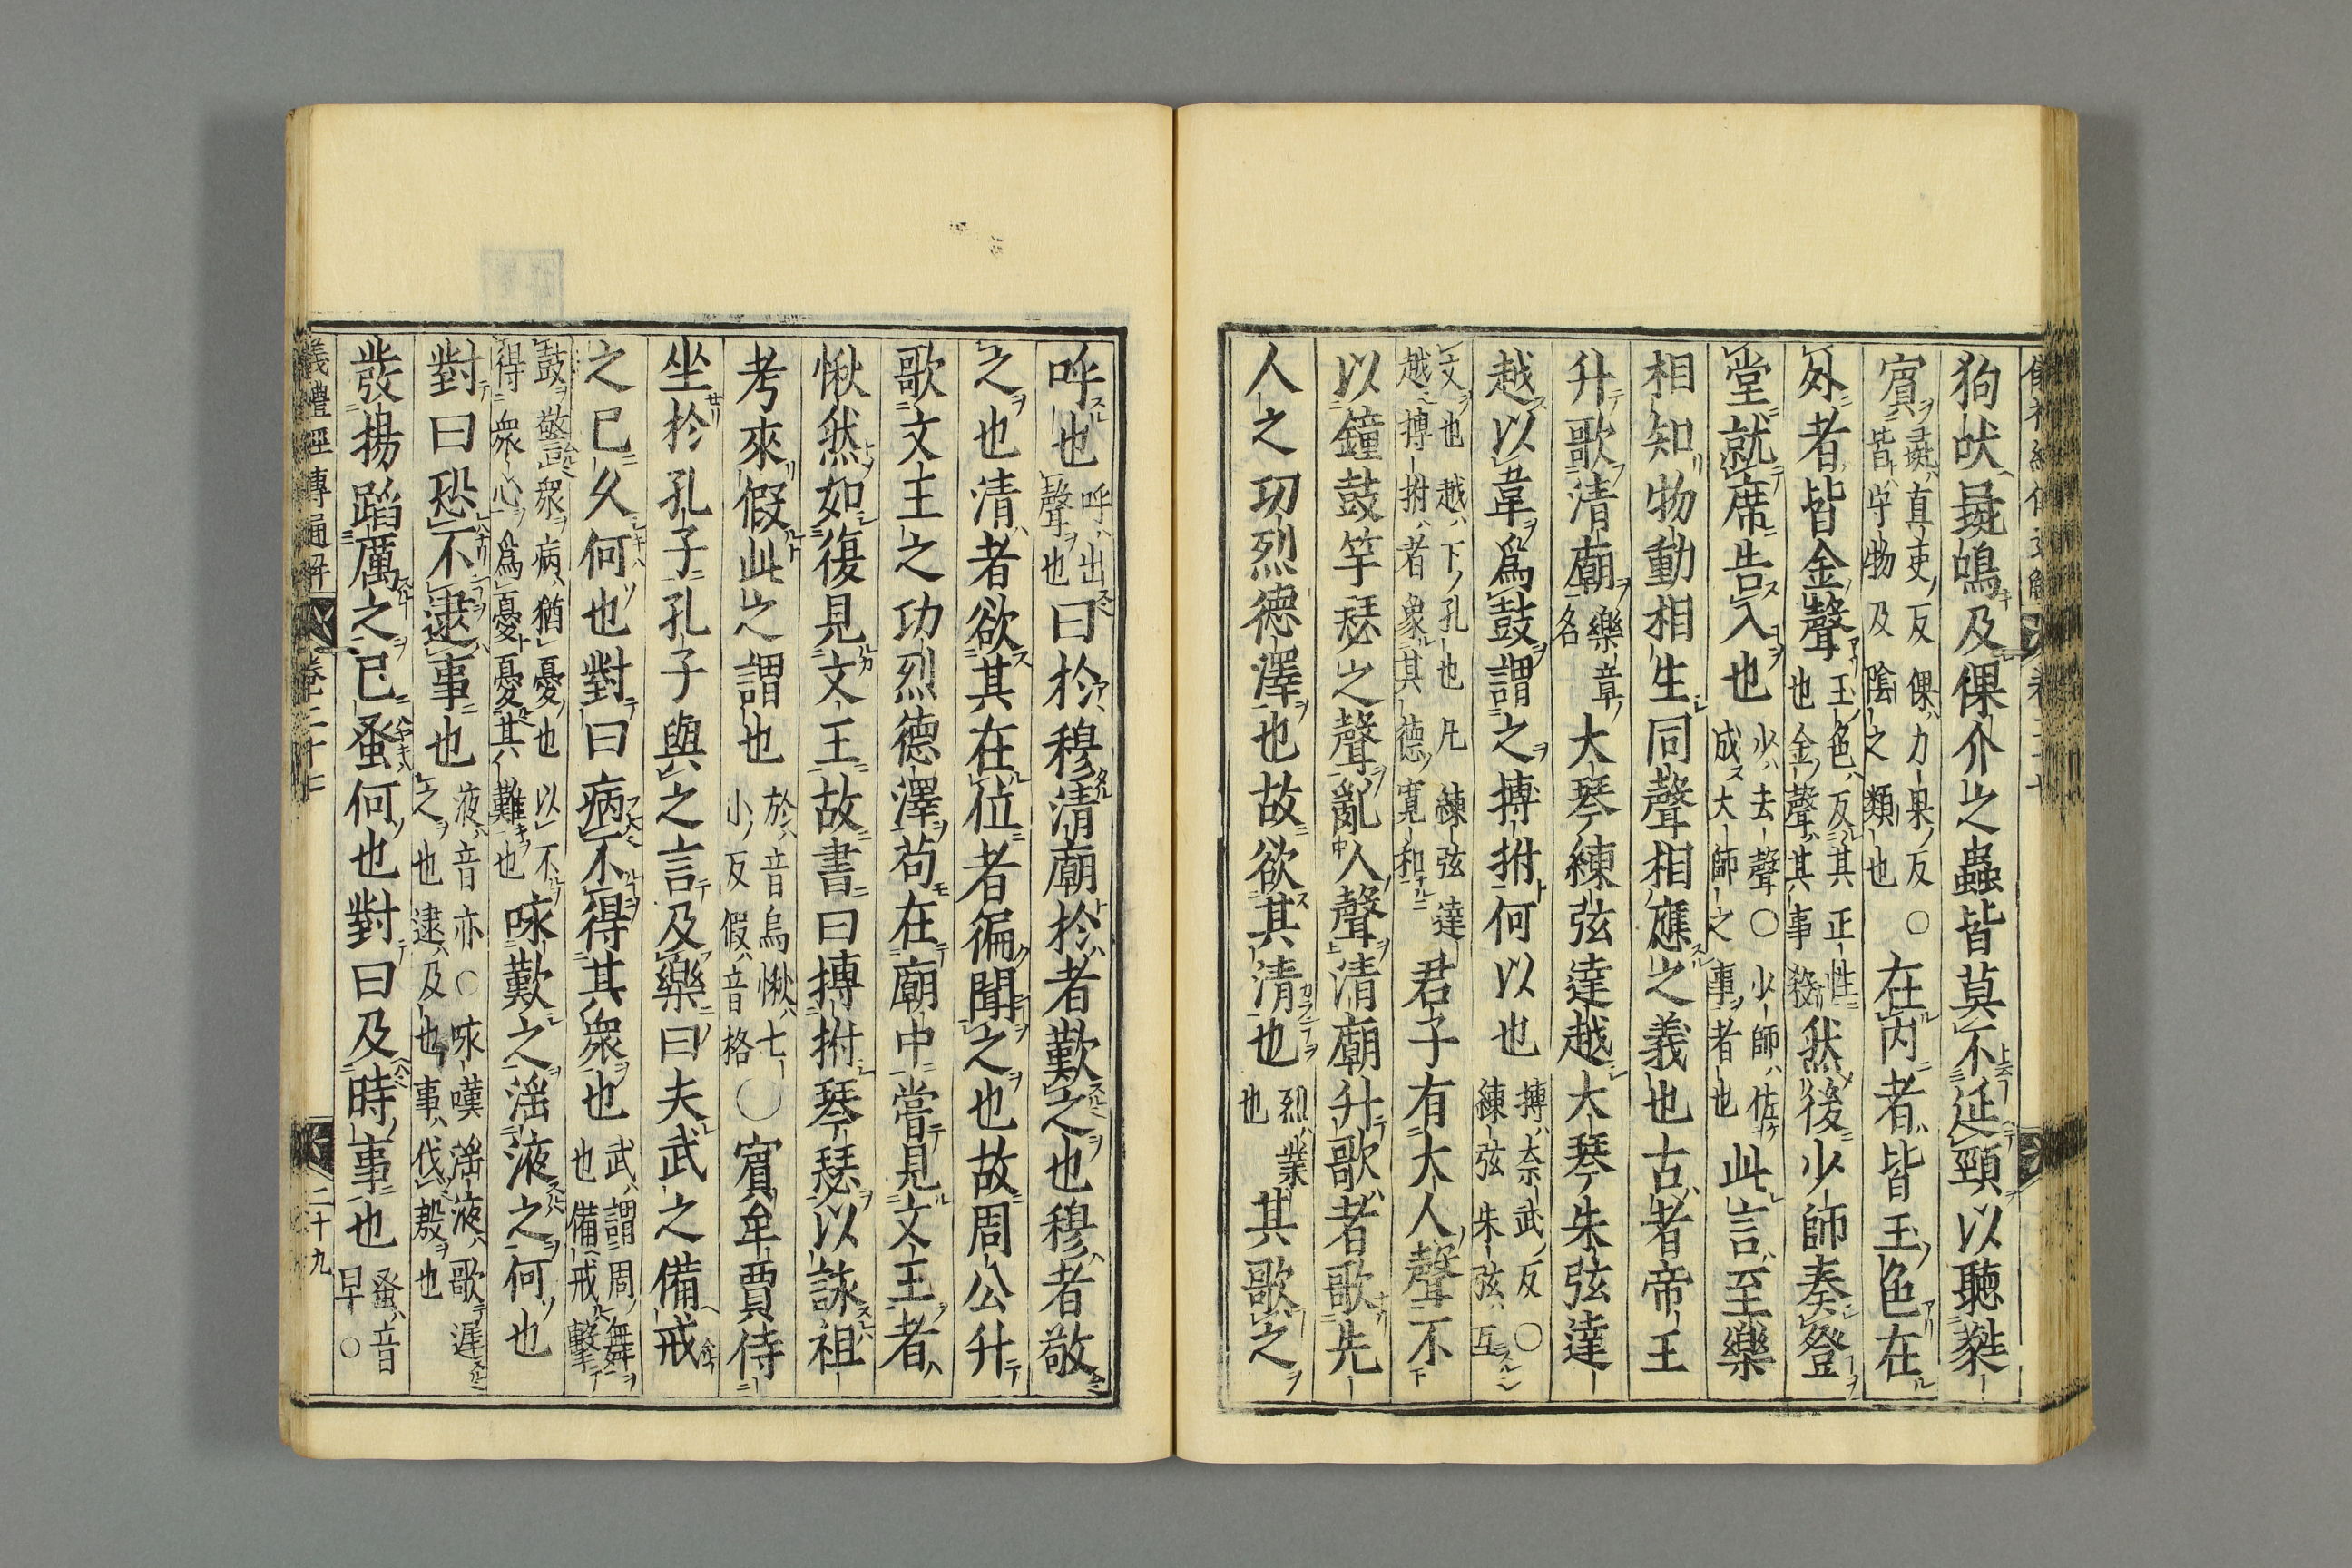 狗吠彘鳴及倮介之蟲皆莫不延頸以聽蕤
賓彘直吏反倮力果反○皆守物及陰之類也在内者皆玉色在
外者皆金聲玉色反其正性也金聲其事殺然後少師奏登
堂就席告入也少去聲○少師佐成大師之事者也此言至樂
相知物動相生同聲相應之義也古者帝王
升歌清廟樂章名大琴練弦達越大琴朱弦達
越以韋爲鼓謂之搏拊何以也搏奈武反○練弦朱弦互
文也越下孔也凡練弦達越搏拊者象其德寛和君子有大人聲不
以鐘鼓竽瑟之聲亂人聲清廟升歌者歌先
人之功烈德澤也故欲其清也烈業也其歌之
呼也呼出聲也曰於穆清廟於者歎之也穆者敬
之也清者欲其在位者徧聞之也故周公升
歌文王之功烈德澤苟在廟中嘗見文王者
愀然如復見文王故書曰搏拊琴瑟以詠祖
考來假此之謂也於音烏愀七小反假音格○賓牟賈侍
坐於孔子孔子與之言及樂曰夫武之備戒
之已久何也對曰病不得其衆也武謂周舞也備戒擊
鼓警衆病猶憂也以不得衆心爲憂憂其難也咏歎之滛液之何也
對曰恐不逮事也液音亦○咏嘆滛液歌遲之也逮及也事伐殷也
發揚蹈厲之已蚤何也對曰及時事也蚤音早○
儀禮經傳通解 卷二十七 二十九